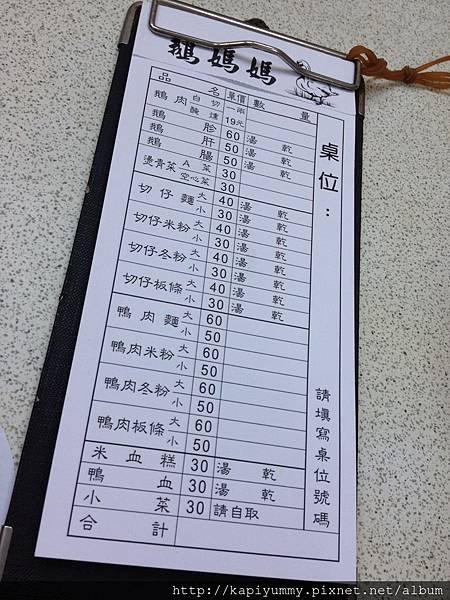 鵝媽媽
品名 單價 數量
鵝肉 白切 醃燻 一兩 19元
鵝胗 60 湯 乾
鵝肝 50 湯 乾
鵝腸 50 湯 乾
燙青菜 A菜 30
空心菜 30
切仔麵 大 40 湯 乾
小 30 湯 乾
切仔米粉 大 40 湯 乾
小 30 湯 乾
切仔冬粉 大 40 湯 乾
小 30 湯 乾
切仔板條 大 40 湯 乾
小 30 湯 乾
鴨肉麵 大 60
小 50
鴨肉米粉 大 60
小 50
鴨肉冬粉 大 60
小 50
鴨肉板條 大 60
小 50
米血糕 30 湯 乾
鴨血 30 湯 乾
小菜 30 請自取
合計
桌位：
請填寫桌位號碼
http://kapiyummy.pixnet.net/album